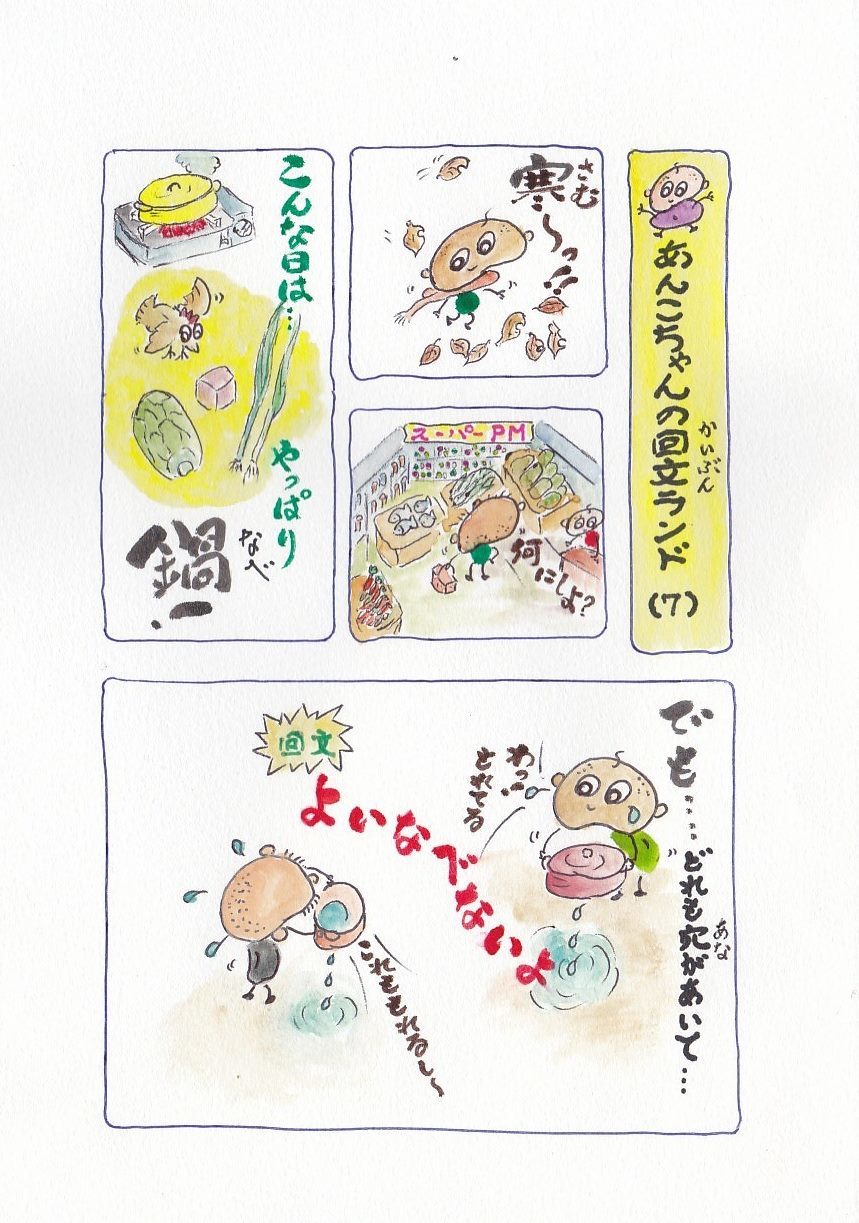 あんこちゃんの回文ランド(7)
かいぶん
寒〜っ!!
さむ
スーパーPM
何にしよ?
こんな日は…
やっぱり
鍋ー!
なべ
でも……どれも穴があいて…
あな
わっ
もれてる
回文
よいなべないよ
これももれるし〜